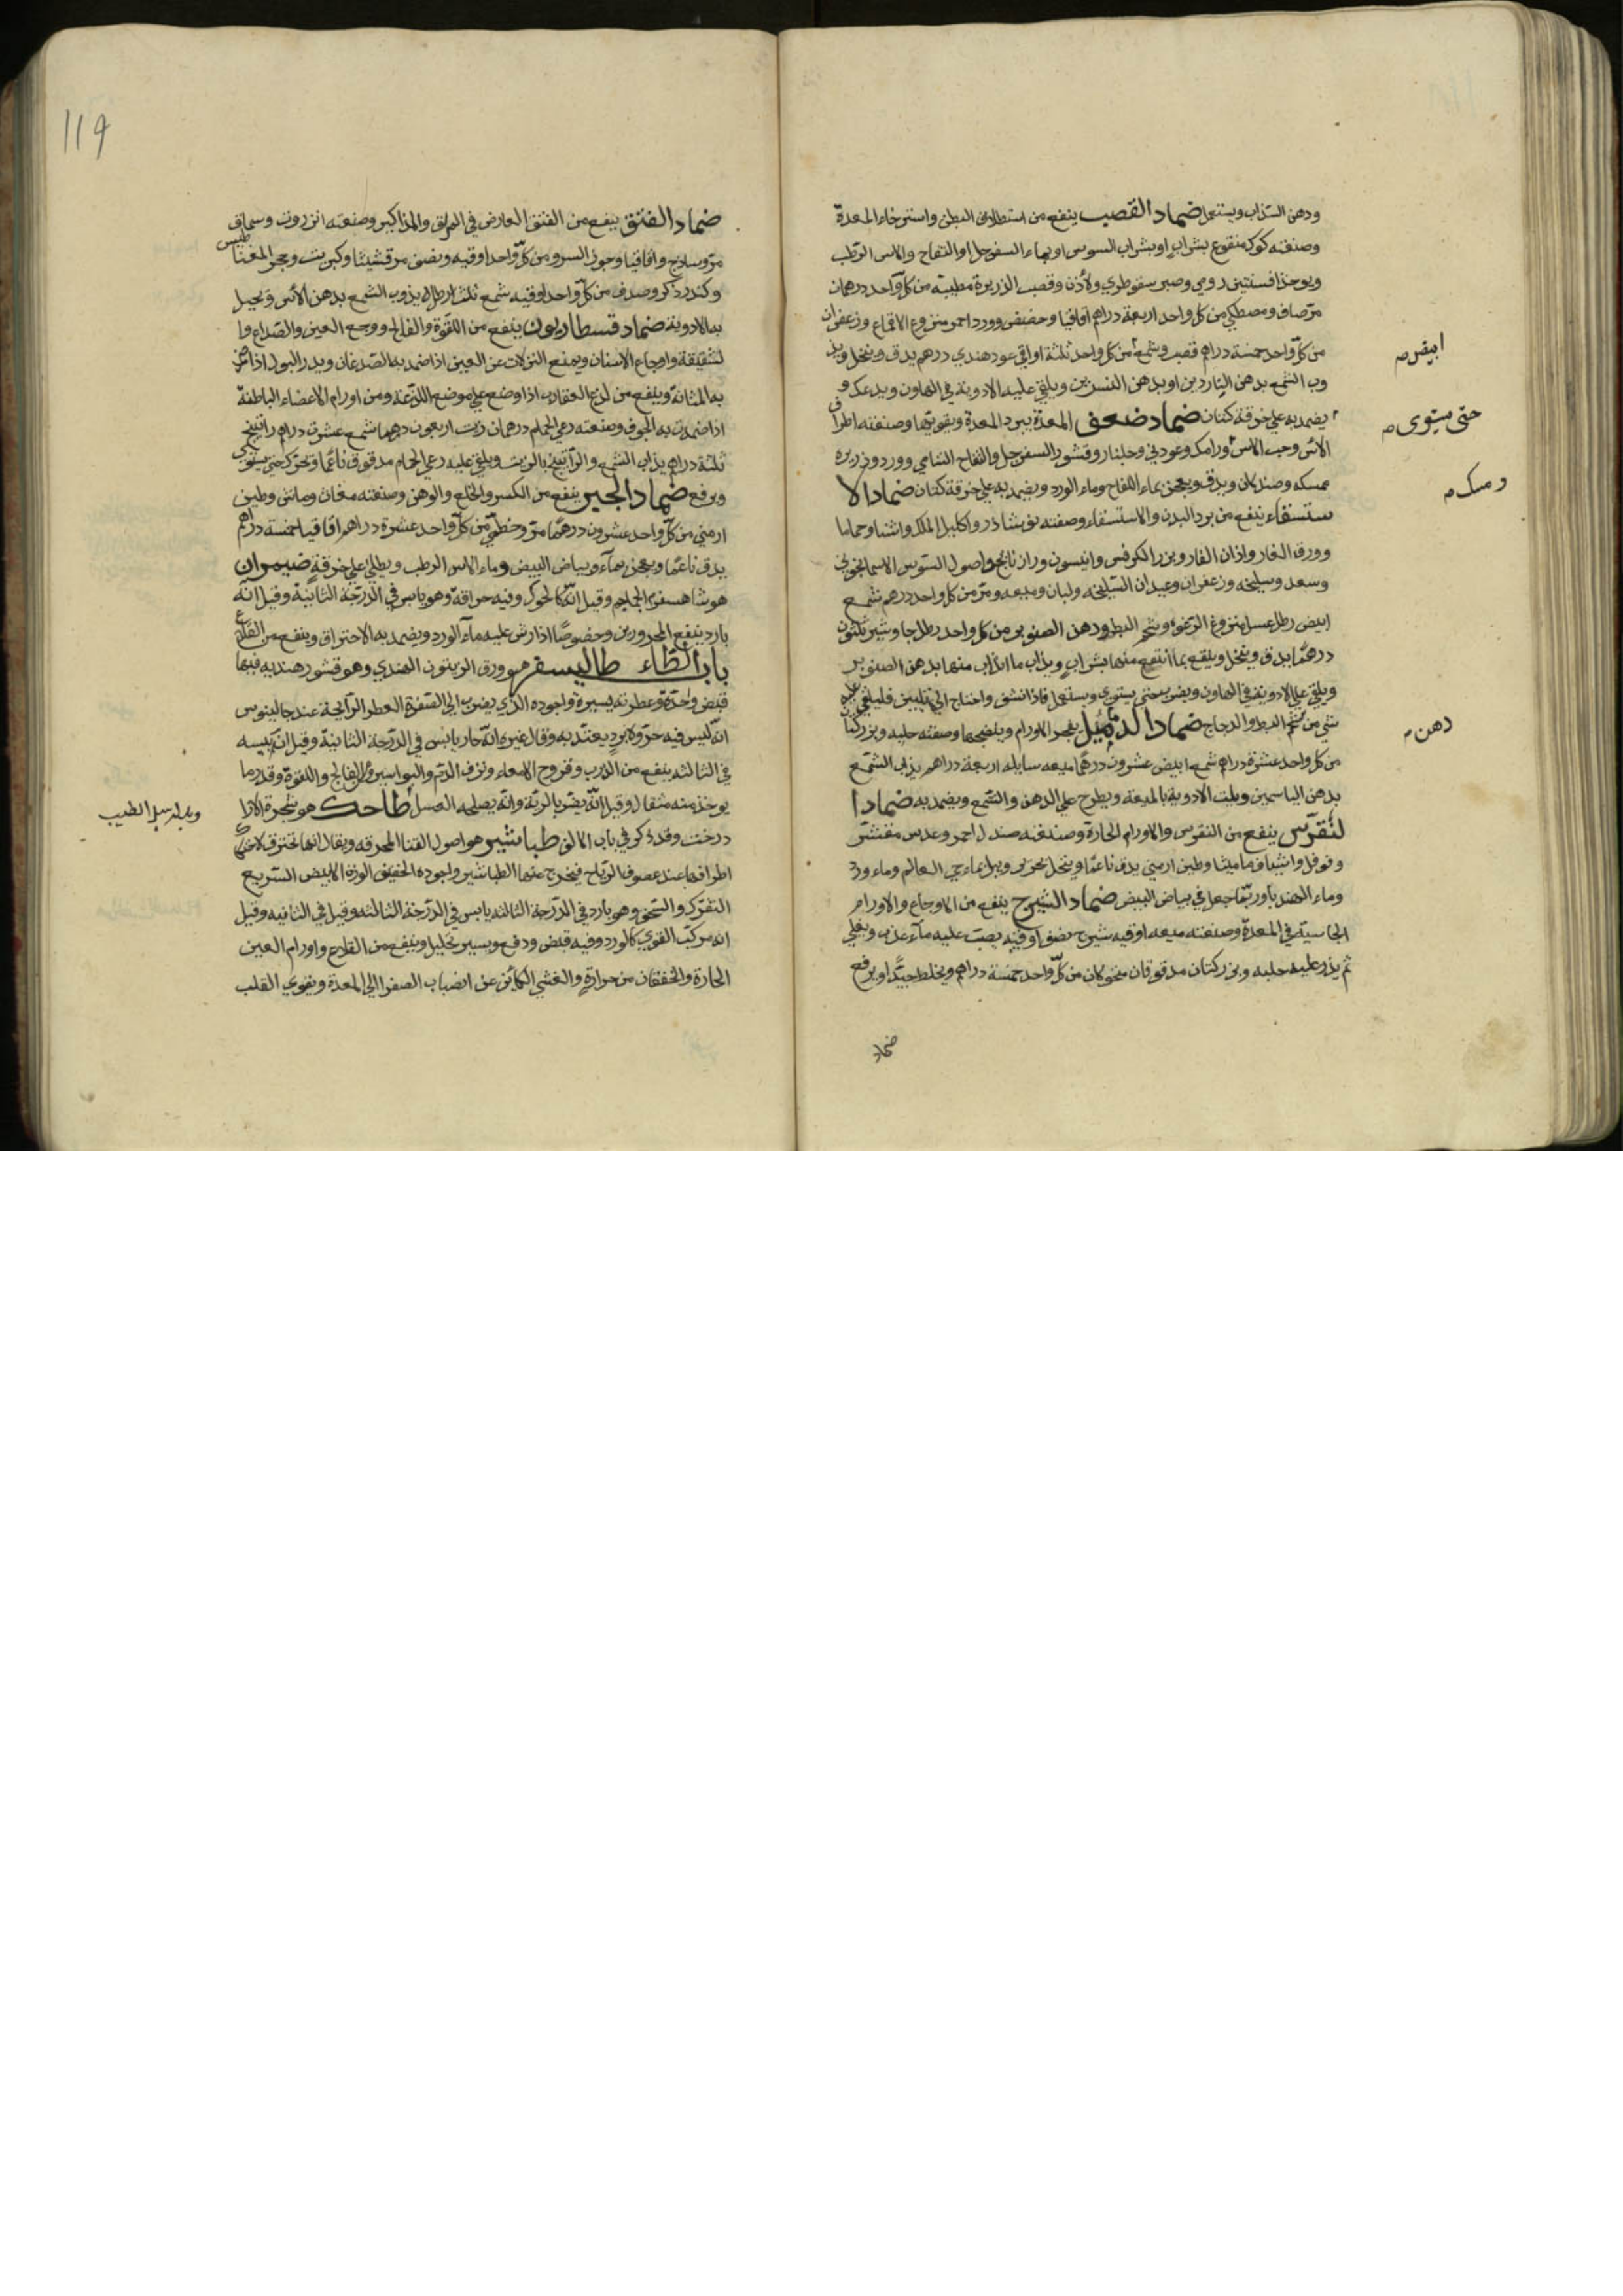 ودهن السذاب ويستعمل ضماد القصب ينفع من استطلاق البطن واسترخاء المعدة
وصنعته كوك منقوع بشراب او بشراب السوس او بماء السفرجل او التفاح والاس الرطب
ويوخذ افسنتين رومي وصبر سقوطري ولاذن وقصب الذريرة مطيبة من كل واحد درهمان
مر صاف ومصطكي من كل واحد اربعة دراهم اقاقيا وحضض وورد احمر منزوع الاقماع وزعفران
من كل واحد خمسة دراهم قصب وشمع من كل واحد ثلثة اواقي عود هندي درهم يدق وينخل ويذ
وب الشمع بدهن الناردين او بدهن النسرين ويلقى عليه الادوية في الهاون ويدعك و
يضمد به على خرقة كتان ضماد ضعف المعدة يبرد المعدة ويقويها وصنعته اطراف
الاس وحب الاس ورامك وعود ني وجلنار وقشور السفرجل والتفاح الشامي وورد وذريرة
ممسكه وصندلان ويدق ويعجن بماء التفاح وماء الورد ويضمد به على خرقة كتان ضماد الا
ستسقاء ينفع من برد البدن والاستسقاء وصفته نوشاذر واكليل الملك واشنا وحماما
وورق الغار واذان الفار وبزر الكرفس وانيسون ورازيانج واصول السوس الاسمانجوني
وسعد وسليخه وزعفران وعيدان السليخه ولبان وميعه ومر من كل واحد درهم شمع
ابيض رطل عسل منزوع الرغوة وشحم البط ودهن الصنوبر من كل واحد رطل جاوشير ثلثون
درهما يدق وينخل وينقع بما انتقع منها بشراب ويذاب ما انذاب منها بدهن الصنوبر
ويلقى على الادوية في الهاون ويضرب حتى يستوي ويستعمل فاذا نشف واحتاج الى تليين فليلقى عليه
شي من شحم البط والدجاج ضماد الدماميل يفجر الاورام وينضجها وصفته حلبه وبزر كتان
من كل واحد عشرة دراهم شمع ابيض عشرون درهما ميعه سايله اربعة دراهم يذاب الشمع
بدهن الياسمين ويلت الادوية بالميعة ويطرح على الدهن والشمع ويضمد به ضماد ا
لنقرس ينفع من النقرس والاورام الحارة وصنعته صندل احمر وعدس مقشر
وفوفل واشياف ماميثا وطين ارمني يدق ناعما وينخل بحرير ويبل بماء حي العالم وماء ورد
وماء الهندبا وربما جعل في بياض البيض ضماد الشيرج ينفع من الاوجاع والاورام
الجاسية في المعدة وصنعته ميعه اوقيه شيرج نصف اوقيه يصب عليه ماء عذب ويغلي
ثم يذر عليه حلبه وبزر كتان مدقوقان منخولان من كل واحد خمسة دراهم ويخلط جيدا ويرفع
ضماد
ابيض
حتى يستوى
ومسك
دهن
119
ضماد الفتق ينفع من الفتق العارض في المراق والمذاكير وصنعته انزروت وسماق
مر وساذج واقاقيا وجوز السرو من كل واحد اوقيه ونصف مرقشيثا وكبريت وحجر المغناطيس
وكندر ذكر وصدف من كل واحد اوقيه شمع ثلث ارطال يذوب الشمع بدهن الاس ويحيل
به الادوية ضماد قسطاريون ينفع من اللقوة والفالج ووجع العين والصداع وا
لشقيقة واوجاع الاسنان ويمنع النزلات عن العين اذا ضمد به الصدغان ويدر البول اذا
به المثانة وينفع من لدغ العقارب اذا وضع على موضع اللدغة ومن اورام الاعضاء الباطنة
اذا ضمدت به الجوف وصنعته رعي الحمام درهمان زيت اربعون درهما شمع عشرة دراهم راتينج
ثلثة دراهم يذاب الشمع والراتينج بالزيت ويلقى عليه رعي الحمام مدقوق ناعما ويحرك حتى يستوي
ويرفع ضماد الجبر ينفع من الكسر والخلع والوهن وصنعته مغاث وماش وطين
ارمني من كل واحد عشرون درهما مر وخطمي من كل واحد عشرة دراهم اقاقيا خمسة دراهم
يدق ناعما ويعجن بماء وبياض البيض وماء الاس الرطب ويطلي على خرقة ضيمران
هو شاهسفرم الجماجم وقيل انه كالحوك وفيه حراقة وهو يابس في الدرجة الثانية وقيل انه
بارد ينفع المحرورين وخصوصا اذا رش عليه ماء الورد ويضمد به الاحتراق وينفع من القلاع
باب الطاء طاليسفر هو ورق الزيتون الهندي وهو قشور هنديه فيها
قبض وحدة وعطريه يسيرة واجوده الذي يضرب الى الصفرة العطر الرائحة عند جالينوس
انه ليس فيه حر ولا برد يعتد به وقال غيره انه حار يابس في الدرجة الثانية وقيل ان يبسه
في الثالثه ينفع من الذرب وقروح الامعاء ونزف الدم والبواسير والفالج واللقوة وقدر ما
يوخذ منه مثقال وقيل انه يضر بالرية وانه يصلحه العسل طاحك هو شجرة الازا
درخت وقد ذكر في باب الالف طباشير هو اصول القنا المحرقه ويقال انها تحترق لاحتكاك
اطرافها عند عصوف الرياح فيخرج عنها الطباشير واجوده الخفيف الوزن الابيض السريع
التفرك والسحق وهو بارد في الدرجة الثالثه يابس في الدرجة الثالثه وقيل في الثانيه وقيل
انه مركب القوي كالورد وفيه قبض ودفع ويسير تحليل وينفع من القلاع واورام العين
الحارة والخفقان من حرارة والغشي الكائن عن انصباب الصفرا الى المعدة ويقوي القلب
وبدله سنبل الطيب